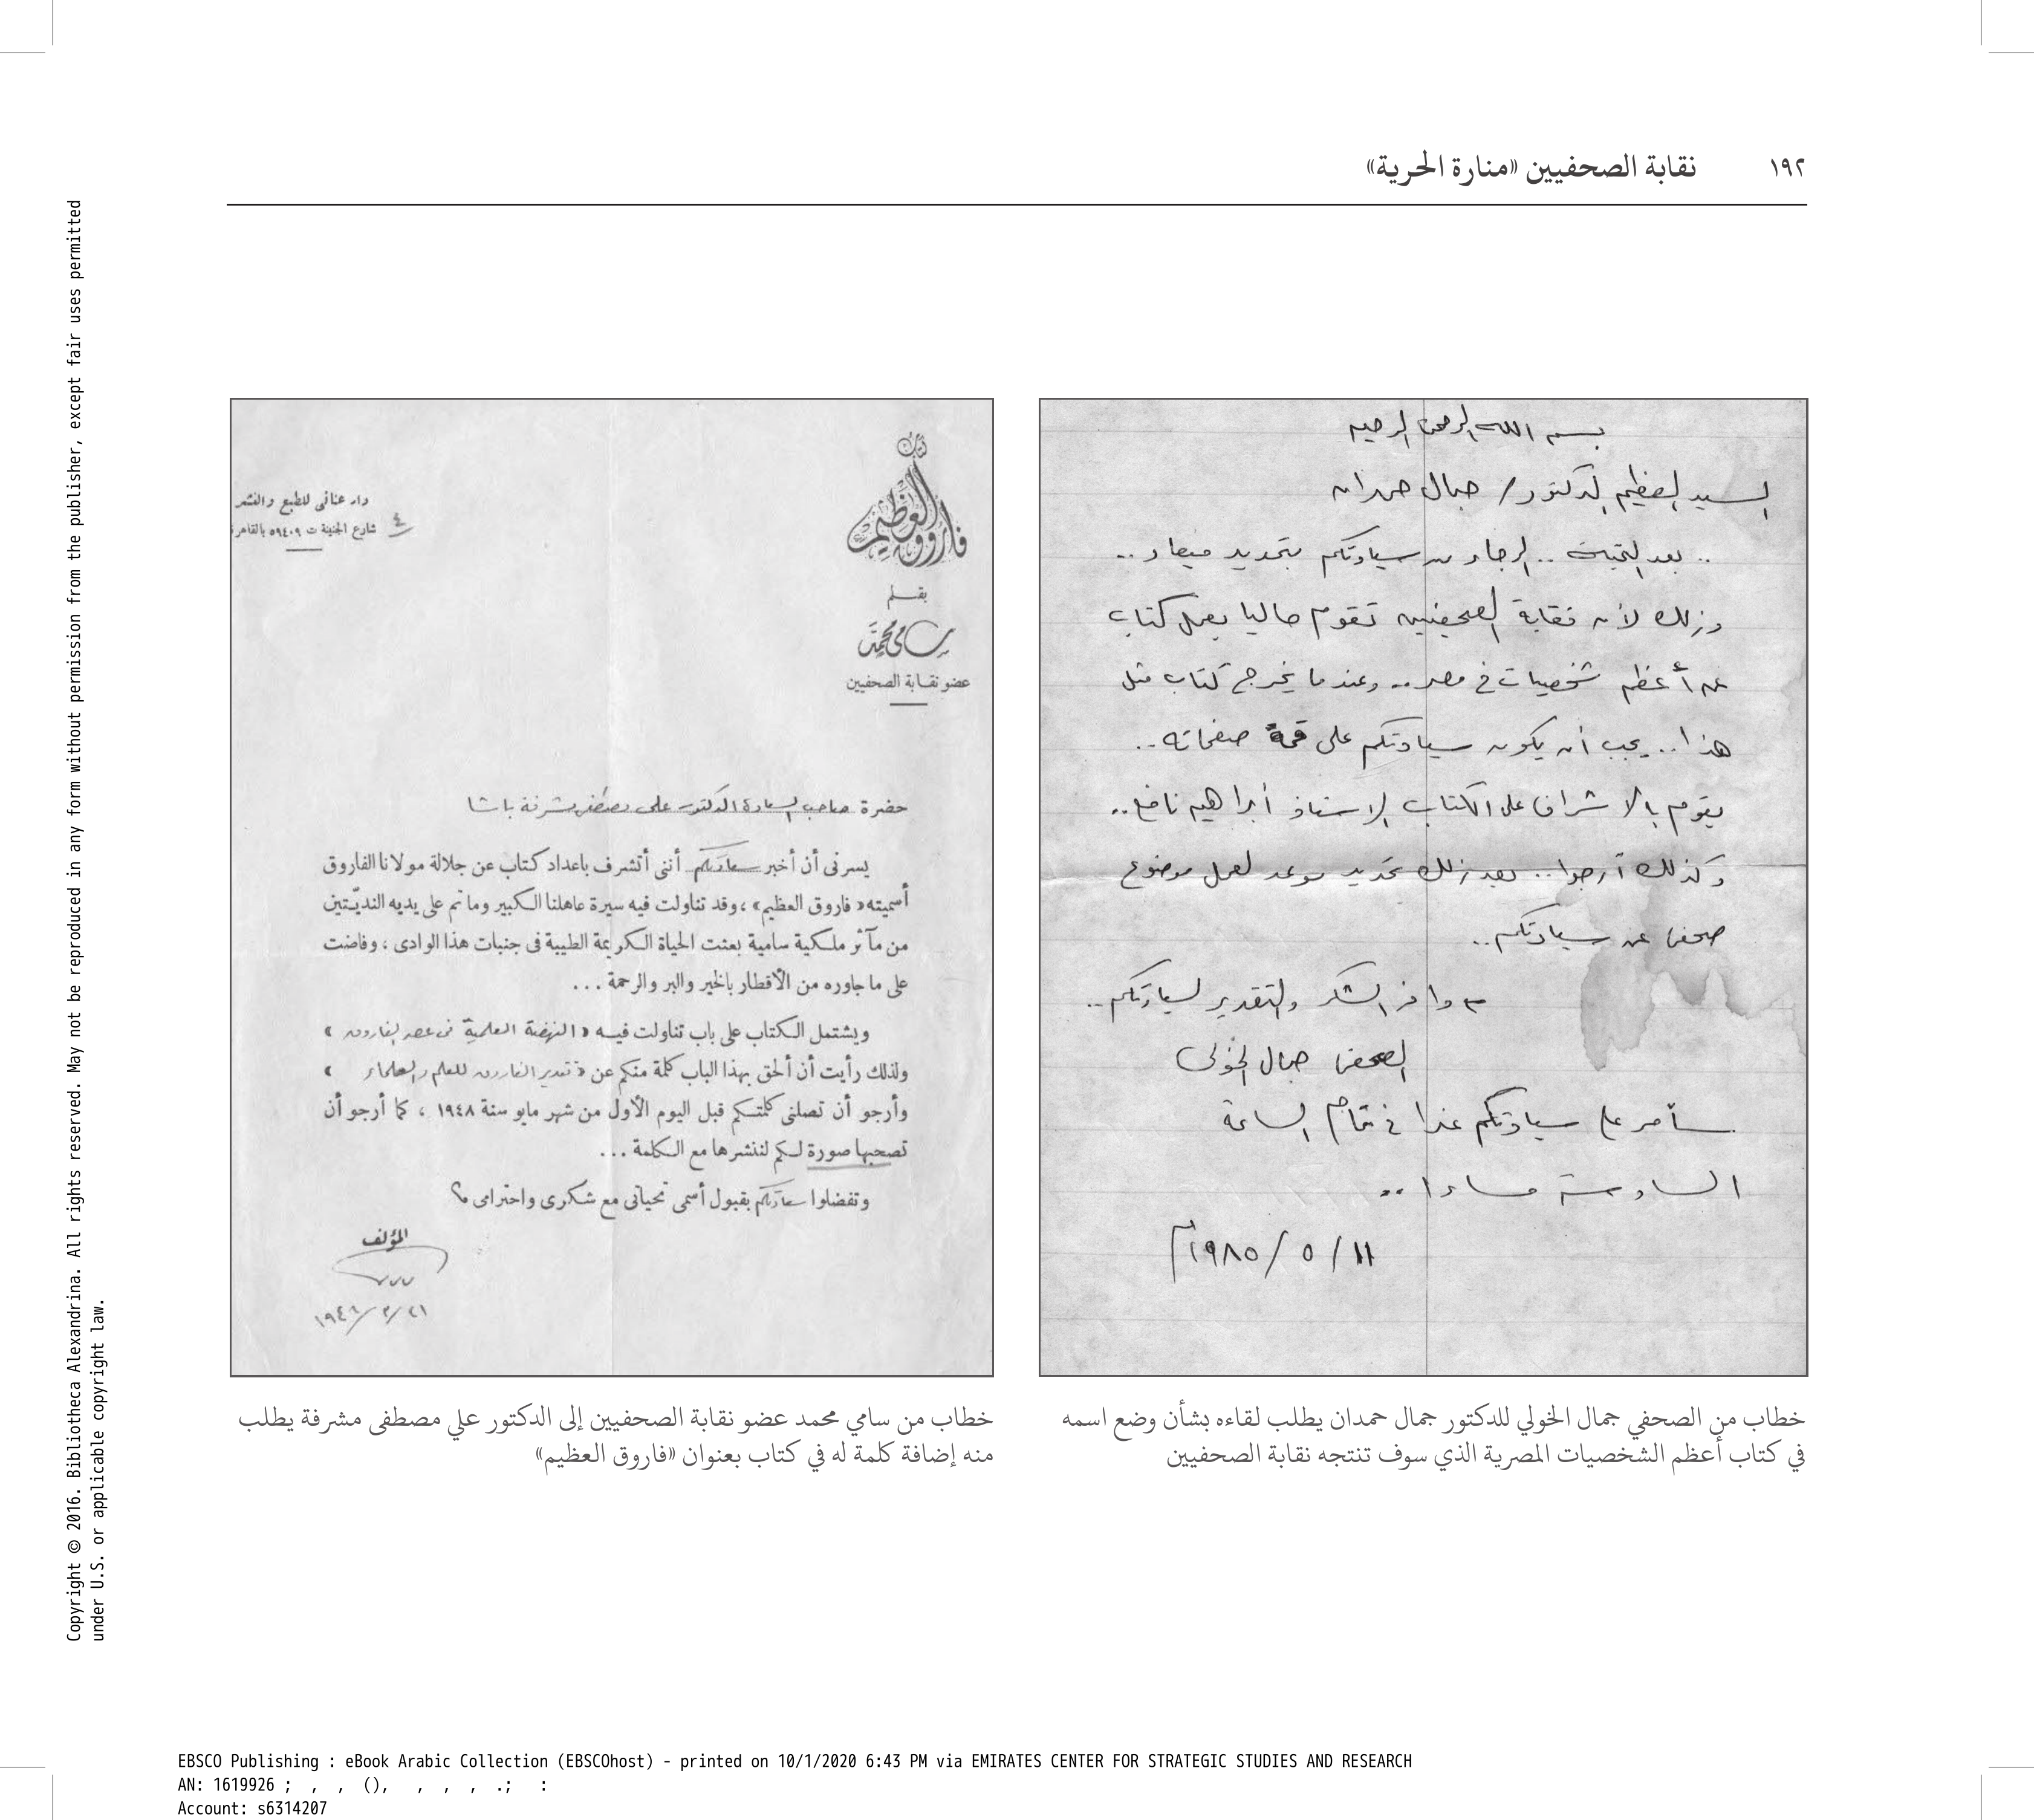 ١٩٢ نقابة الصحفيين «منارة الحرية»
بسم الله الرحمن الرحيم
السيد العظيم الدكتور / جمال حمدان
.. بعد التحية .. الرجاء من سيادتكم بتحديد ميعاد ..
وذلك لأن نقابة الصحفيين تقوم حاليا بعمل كتاب
عن أعظم شخصيات في مصر .. وعندما يخرج كتاب مثل
هذا .. يجب أن يكون سيادتكم على قمة صفحاته ..
يقوم بالاشراف على الكتاب الاستاذ أبراهيم نافع ..
وكذلك أرجوا .. بعد ذلك تحديد موعد لعمل موضوع
صحفى عن سيادتكم ..
مع وافر الشكر والتقدير لسيادتكم ..
الصحفى جمال الخولى
سأمر على سيادتكم غدا في تمام الساعة
السادسة مساءا ..
١١ / ٥ / ١٩٨٥م
خطاب من الصحفي جمال الخولي للدكتور جمال حمدان يطلب لقاءه بشأن وضع اسمه
في كتاب أعظم الشخصيات المصرية الذي سوف تنتجه نقابة الصحفيين
كتاب
فاروق العظيم
بقلم
سامى محمد
عضو نقابة الصحفيين
دار عنانى للطبع والنشر
٤ شارع الجنينة ت ٥٩٤٠٩ بالقاهرة
حضرة صاحب السعادة الدكتور على مصطفى مشرفة باشا
يسرنى أن أخبر سعادتكم أننى أتشرف باعداد كتاب عن جلالة مولانا الفاروق
أسميته «فاروق العظيم» ، وقد تناولت فيه سيرة عاهلنا الكبير وما تم على يديه النديّتين
من مآثر ملكية سامية بعثت الحياة الكريمة الطيبة فى جنبات هذا الوادى ، وفاضت
على ما جاوره من الأقطار بالخير والبر والرحمة ...
ويشتمل الكتاب على باب تناولت فيه « النهضة العلمية فى عصر الفاروق »
ولذلك رأيت أن ألحق بهذا الباب كلمة منكم عن « تقدير الفاروق للعلم والعلماء »
وأرجو أن تصلنى كلمتكم قبل اليوم الأول من شهر مايو سنة ١٩٤٨ ، كما أرجو أن
تصحبها صورة لكم لننشرها مع الكلمة ...
وتفضلوا سعادتكم بقبول أسمى تحياتى مع شكرى واحترامى
المؤلف
خطاب من سامي محمد عضو نقابة الصحفيين إلى الدكتور علي مصطفى مشرفة يطلب
منه إضافة كلمة له في كتاب بعنوان «فاروق العظيم»
Copyright © 2016. Bibliotheca Alexandrina. All rights reserved. May not be reproduced in any form without permission from the publisher, except fair uses permitted
under U.S. or applicable copyright law.
EBSCO Publishing : eBook Arabic Collection (EBSCOhost) - printed on 10/1/2020 6:43 PM via EMIRATES CENTER FOR STRATEGIC STUDIES AND RESEARCH
AN: 1619926 ; , , (), , , , .; :
Account: s6314207